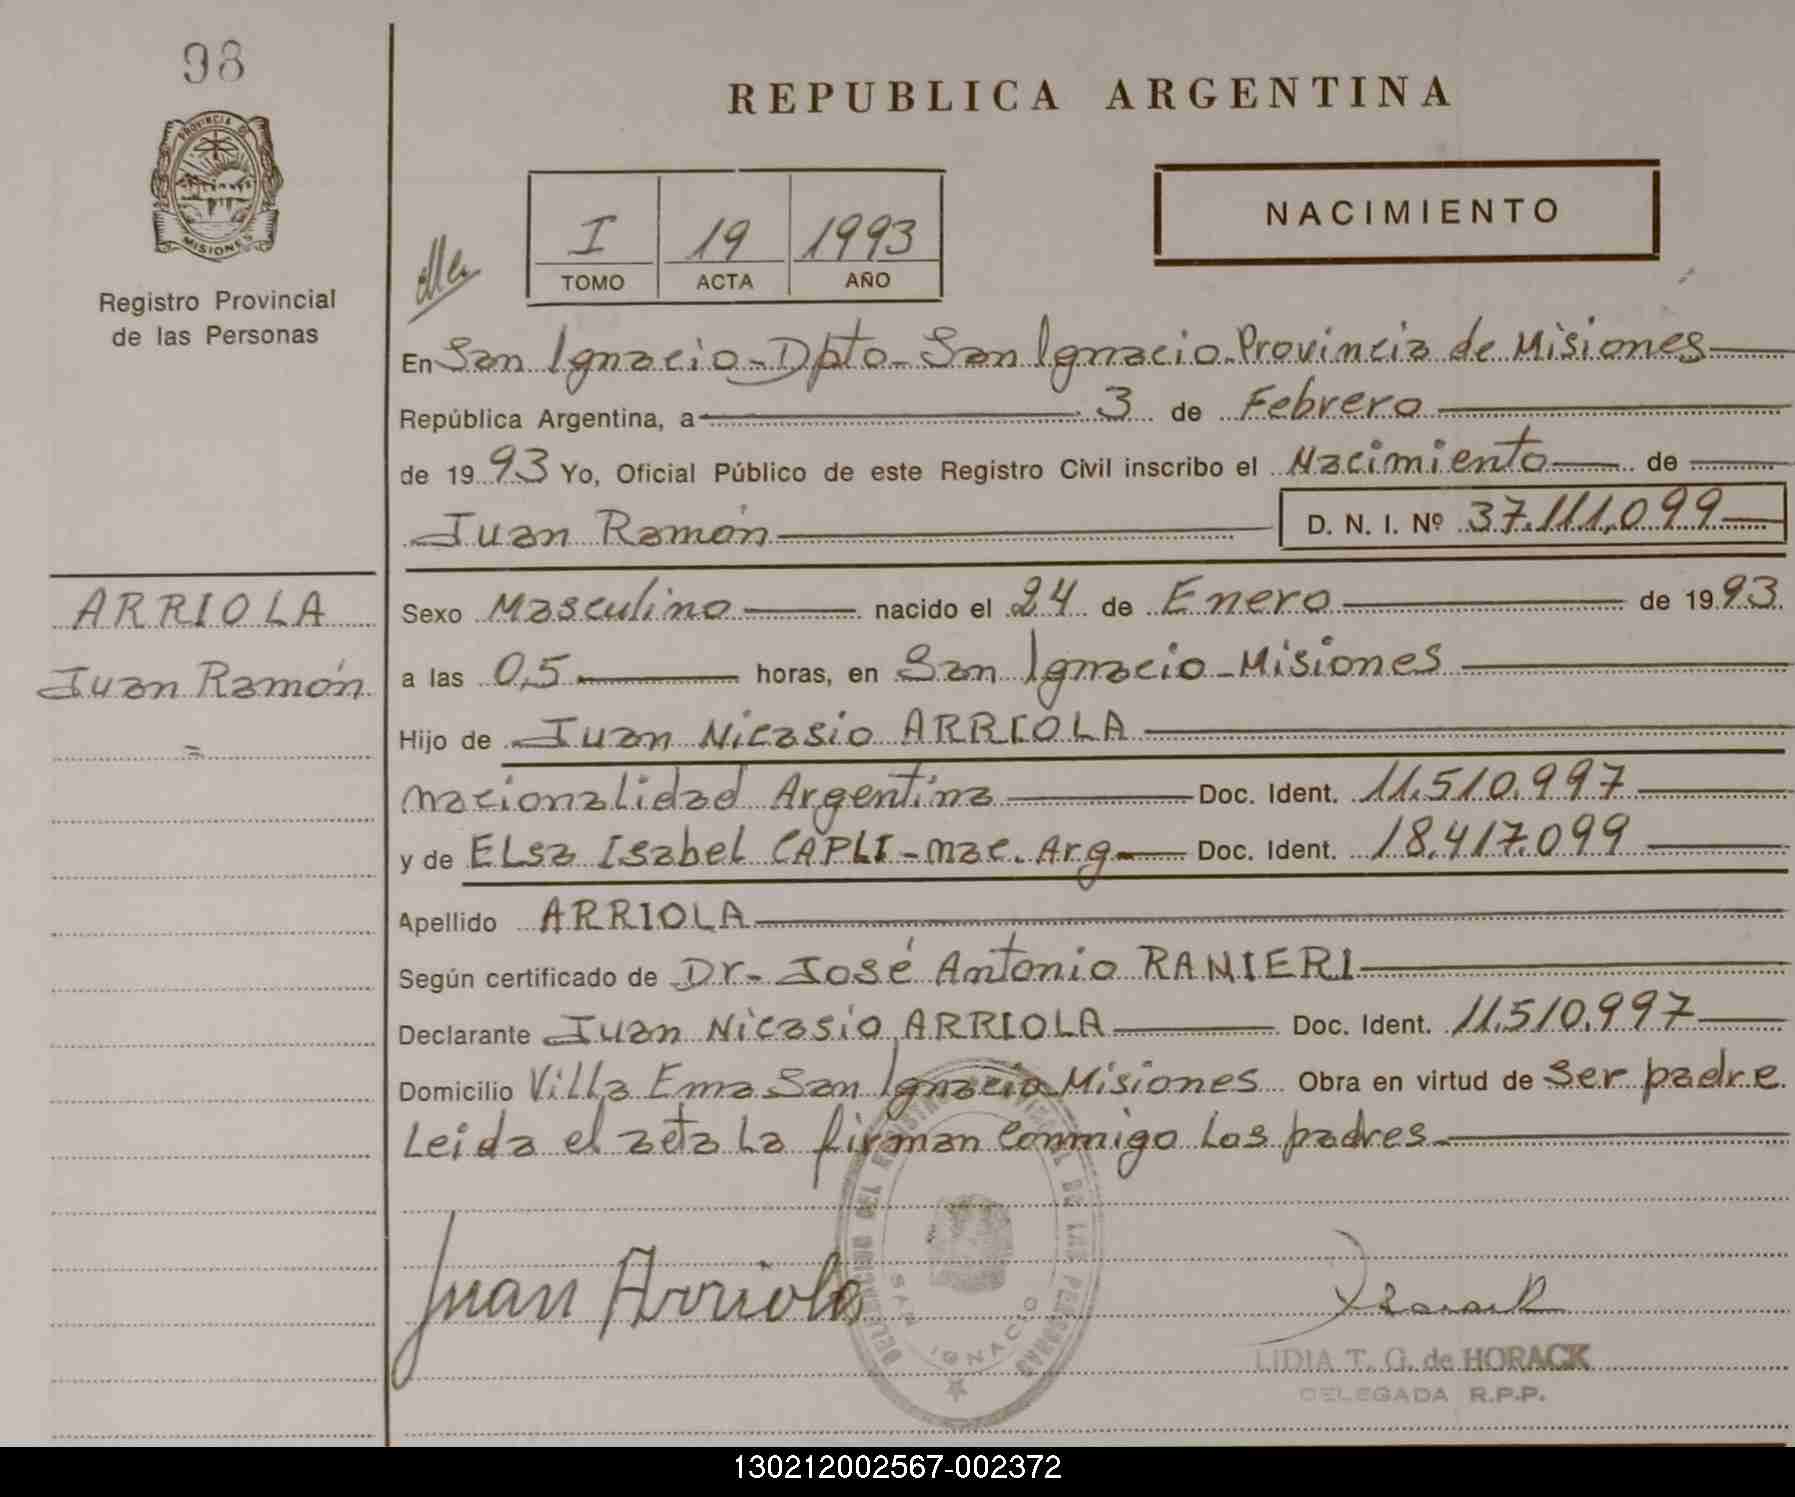 98
REPUBLICA ARGENTINA
PROVINCIA DE
MISIONES
Registro Provincial
de las Personas
I 19 1993
TOMO ACTA AÑO
NACIMIENTO
En San Ignacio - Dpto - San Ignacio. Provincia de Misiones
República Argentina, a 3 de Febrero
de 1993 Yo, Oficial Público de este Registro Civil inscribo el Nacimiento de
Juan Ramón D. N. I. Nº 37.111.099
ARRIOLA
Juan Ramón
=
Sexo Masculino nacido el 24 de Enero de 1993.
a las 0,5 horas, en San Ignacio - Misiones
Hijo de Juan Nicasio ARRIOLA
nacionalidad Argentina Doc. Ident. 11.510.997
y de ELsa Isabel CAPLI - nac. Arg Doc. Ident. 18.417.099
Apellido ARRIOLA
Según certificado de Dr - José Antonio RANIERI
Declarante Juan Nicasio ARRIOLA Doc. Ident. 11.510.997
Domicilio Villa Ema San Ignacio Misiones Obra en virtud de ser padre.
Leida el acta la firman conmigo los padres
Juan Arriola
DELEGACION DEL REGISTRO PROVINCIAL DE LAS PERSONAS
SAN IGNACIO
LIDIA T. G. de HORACK
DELEGADA R.P.P.
130212002567-002372